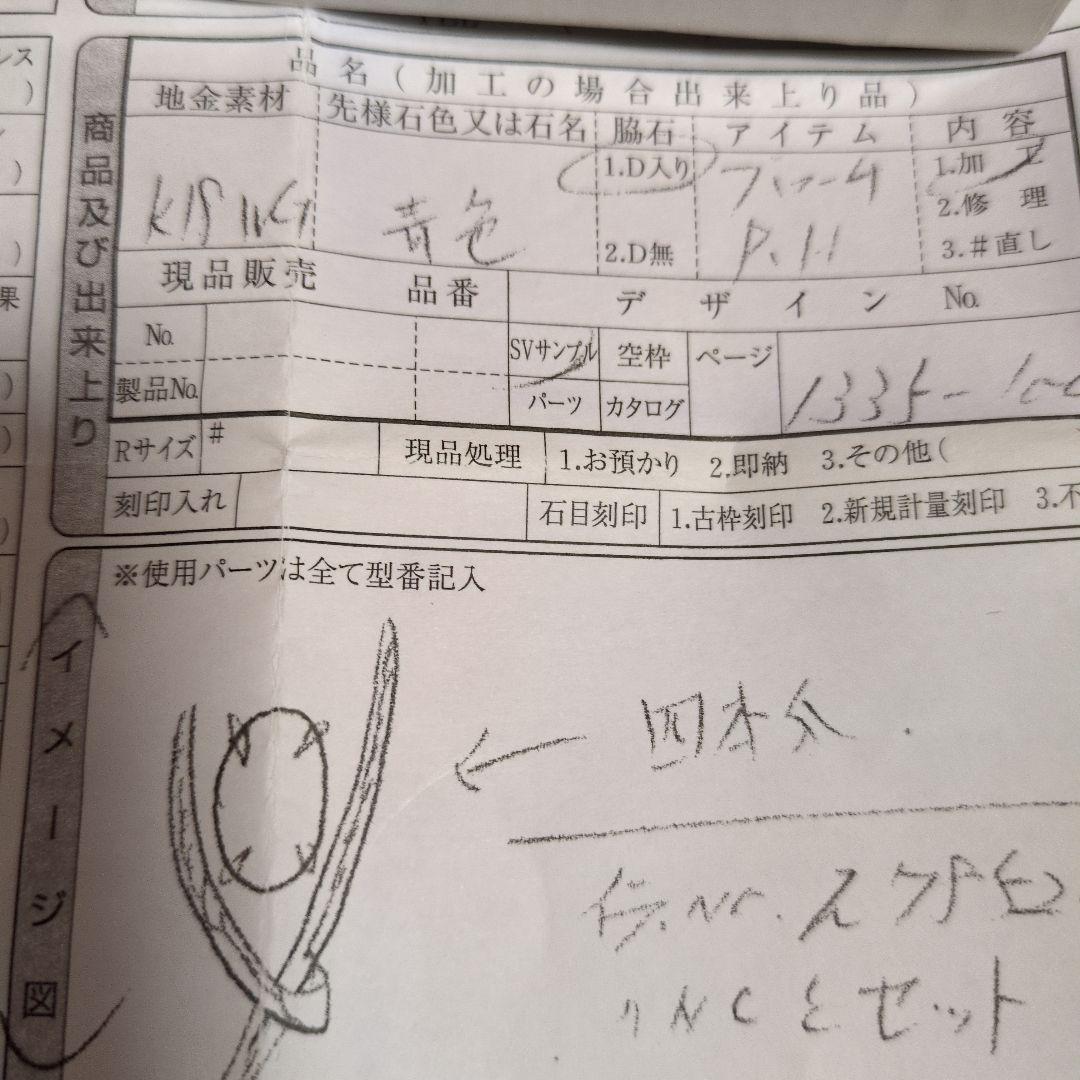 レス
)
)
)
果
)
)
)
商品及び出来上り
品名(加工の場合出来上り品)
地金素材 先様石色又は石名 脇石 アイテム 内容
K18WG 青色 1.D入り 2.D無 P.H 1.加工 2.修理 3.#直し
現品販売 品番 デザイン No.
No. SVサンプル 空枠 ページ
製品No. パーツ カタログ
1335-10
Rサイズ # 現品処理 1.お預かり 2.即納 3.その他(
刻印入れ 石目刻印 1.古枠刻印 2.新規計量刻印 3.不
イメージ図
※使用パーツは全て型番記入
四本爪.
NCとセット